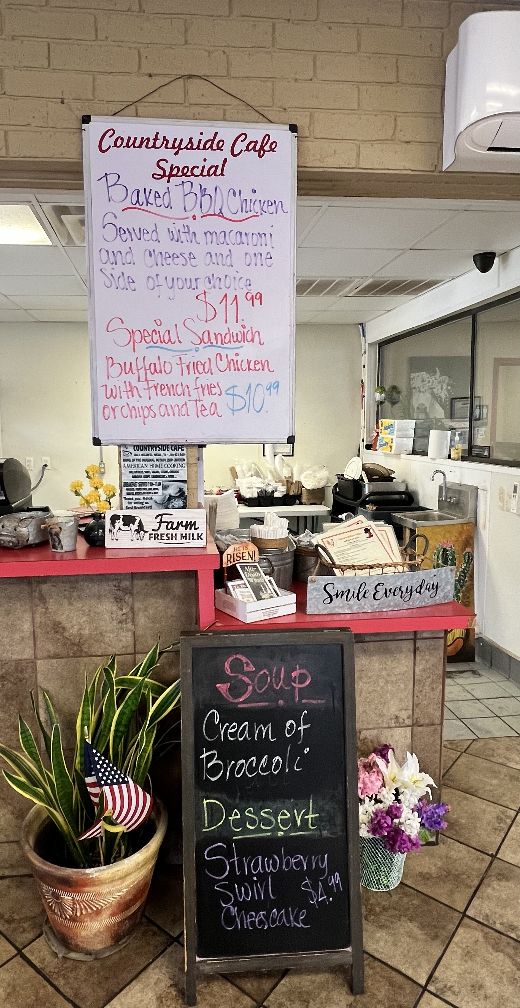 Countryside Cafe
Special
Baked BBQ Chicken
Served with macaroni
and cheese and one
Side of your choice
$11.99
Special Sandwich
Buffalo Fried Chicken
with french fries
or chips and Tea $10.99
COUNTRYSIDE CAFE
AMERICAN HOME COOKING
Farm
FRESH MILK
HE IS
RISEN!
Smile Everyday
Soup
Cream of
Broccoli
Dessert
Strawberry
Swirl $4.99
Cheescake